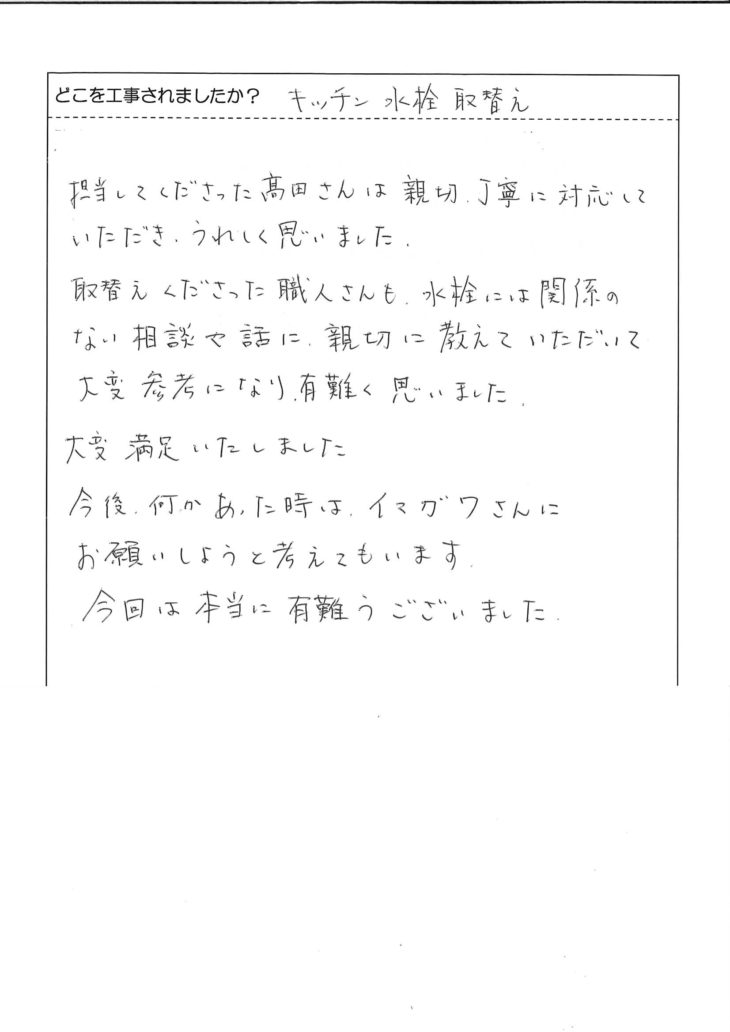 どこを工事されましたか? キッチン 水栓 取替え
担当してくださった髙田さんは 親切、丁寧に 対応して
いただき、うれしく思いました。
取替え くださった 職人さんも、水栓には関係の
ない 相談や 話に、親切に 教えて いただいて
大変 参考になり、有難く 思いました。
大変 満足いたしました
今後、何かあった時は、イマガワさんに
お願いしようと考えてもいます。
今回は 本当に 有難うございました。